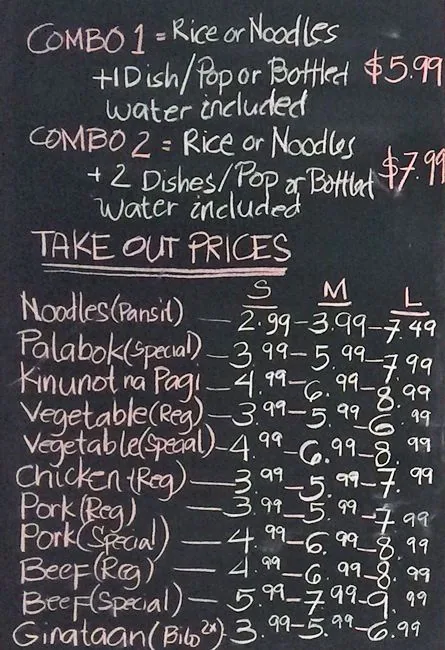 COMBO 1 = Rice or Noodles
+1 Dish/Pop or Bottled $5.99
water included
COMBO 2 = Rice or Noodles
+ 2 Dishes/Pop or Bottled $7.99
water included
TAKE OUT PRICES
S M L
Noodles (Pansit) — 2.99-3.99-7.49
Palabok (Special) — 3.99-5.99-7.99
Kinunot na Pagi — 4.99-6.99-8.99
Vegetable (Reg) — 3.99-5.99-6.99
Vegetable (Special) — 4.99-6.99-8.99
Chicken (Reg) — 3.99-5.99-7.99
Pork (Reg) — 3.99-5.99-7.99
Pork (Special) — 4.99-6.99-8.99
Beef (Reg) — 4.99-6.99-8.99
Beef (Special) — 5.99-7.99-9.99
Ginataan (Bilo2x) 3.99-5.99-6.99